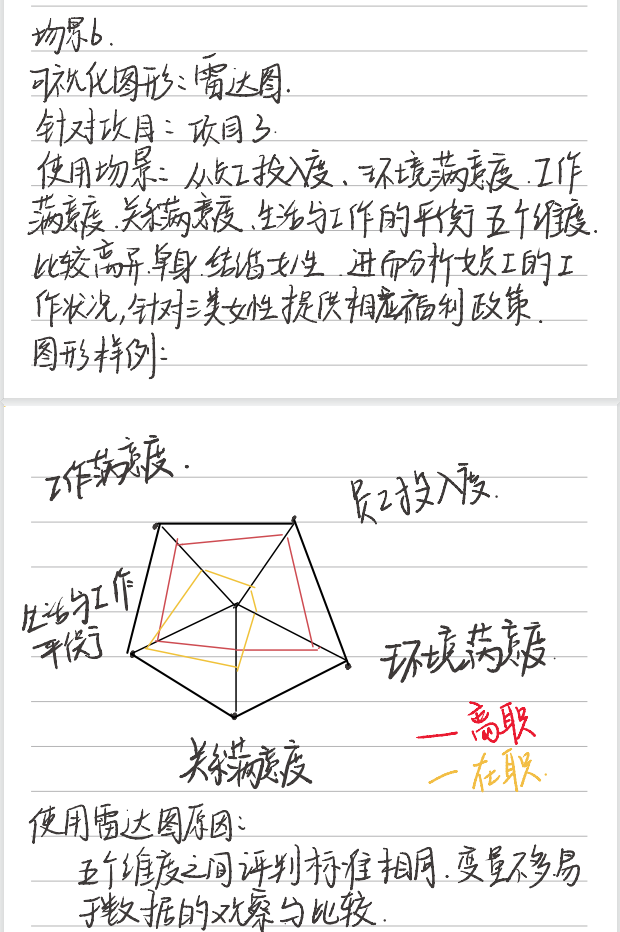 场景6.
可视化图形：雷达图.
针对项目：项目3.
使用场景：从员工投入度、环境满意度、工作
满意度、关系满意度、生活与工作的平衡 五个维度.
比较离异、单身、结婚女性 进而分析女员工的工
作状况,针对三类女性提供相应福利政策.
图形样例:
工作满意度.
员工投入度.
生活与工作
平衡
环境满意度.
关系满意度
离职
在职.
使用雷达图原因:
五个维度之间评判标准相同.变量不多,易
于数据的观察与比较.